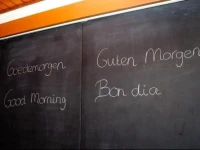 Goedemorgen
Guten Morgen
Good Morning
Bon dia